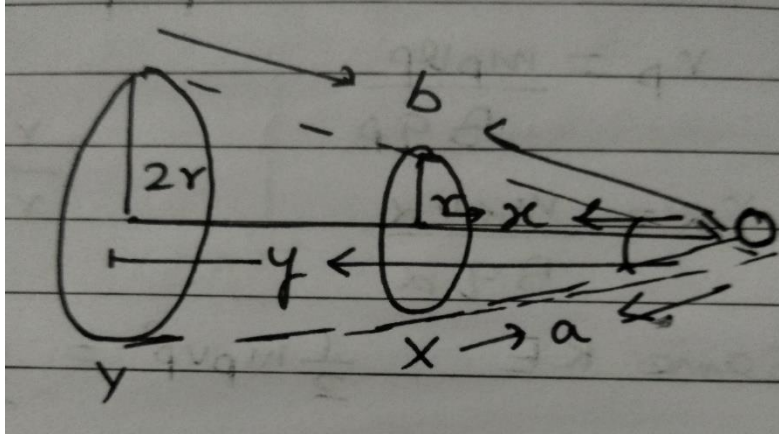 b
2r
r x O
y
X → a
Y